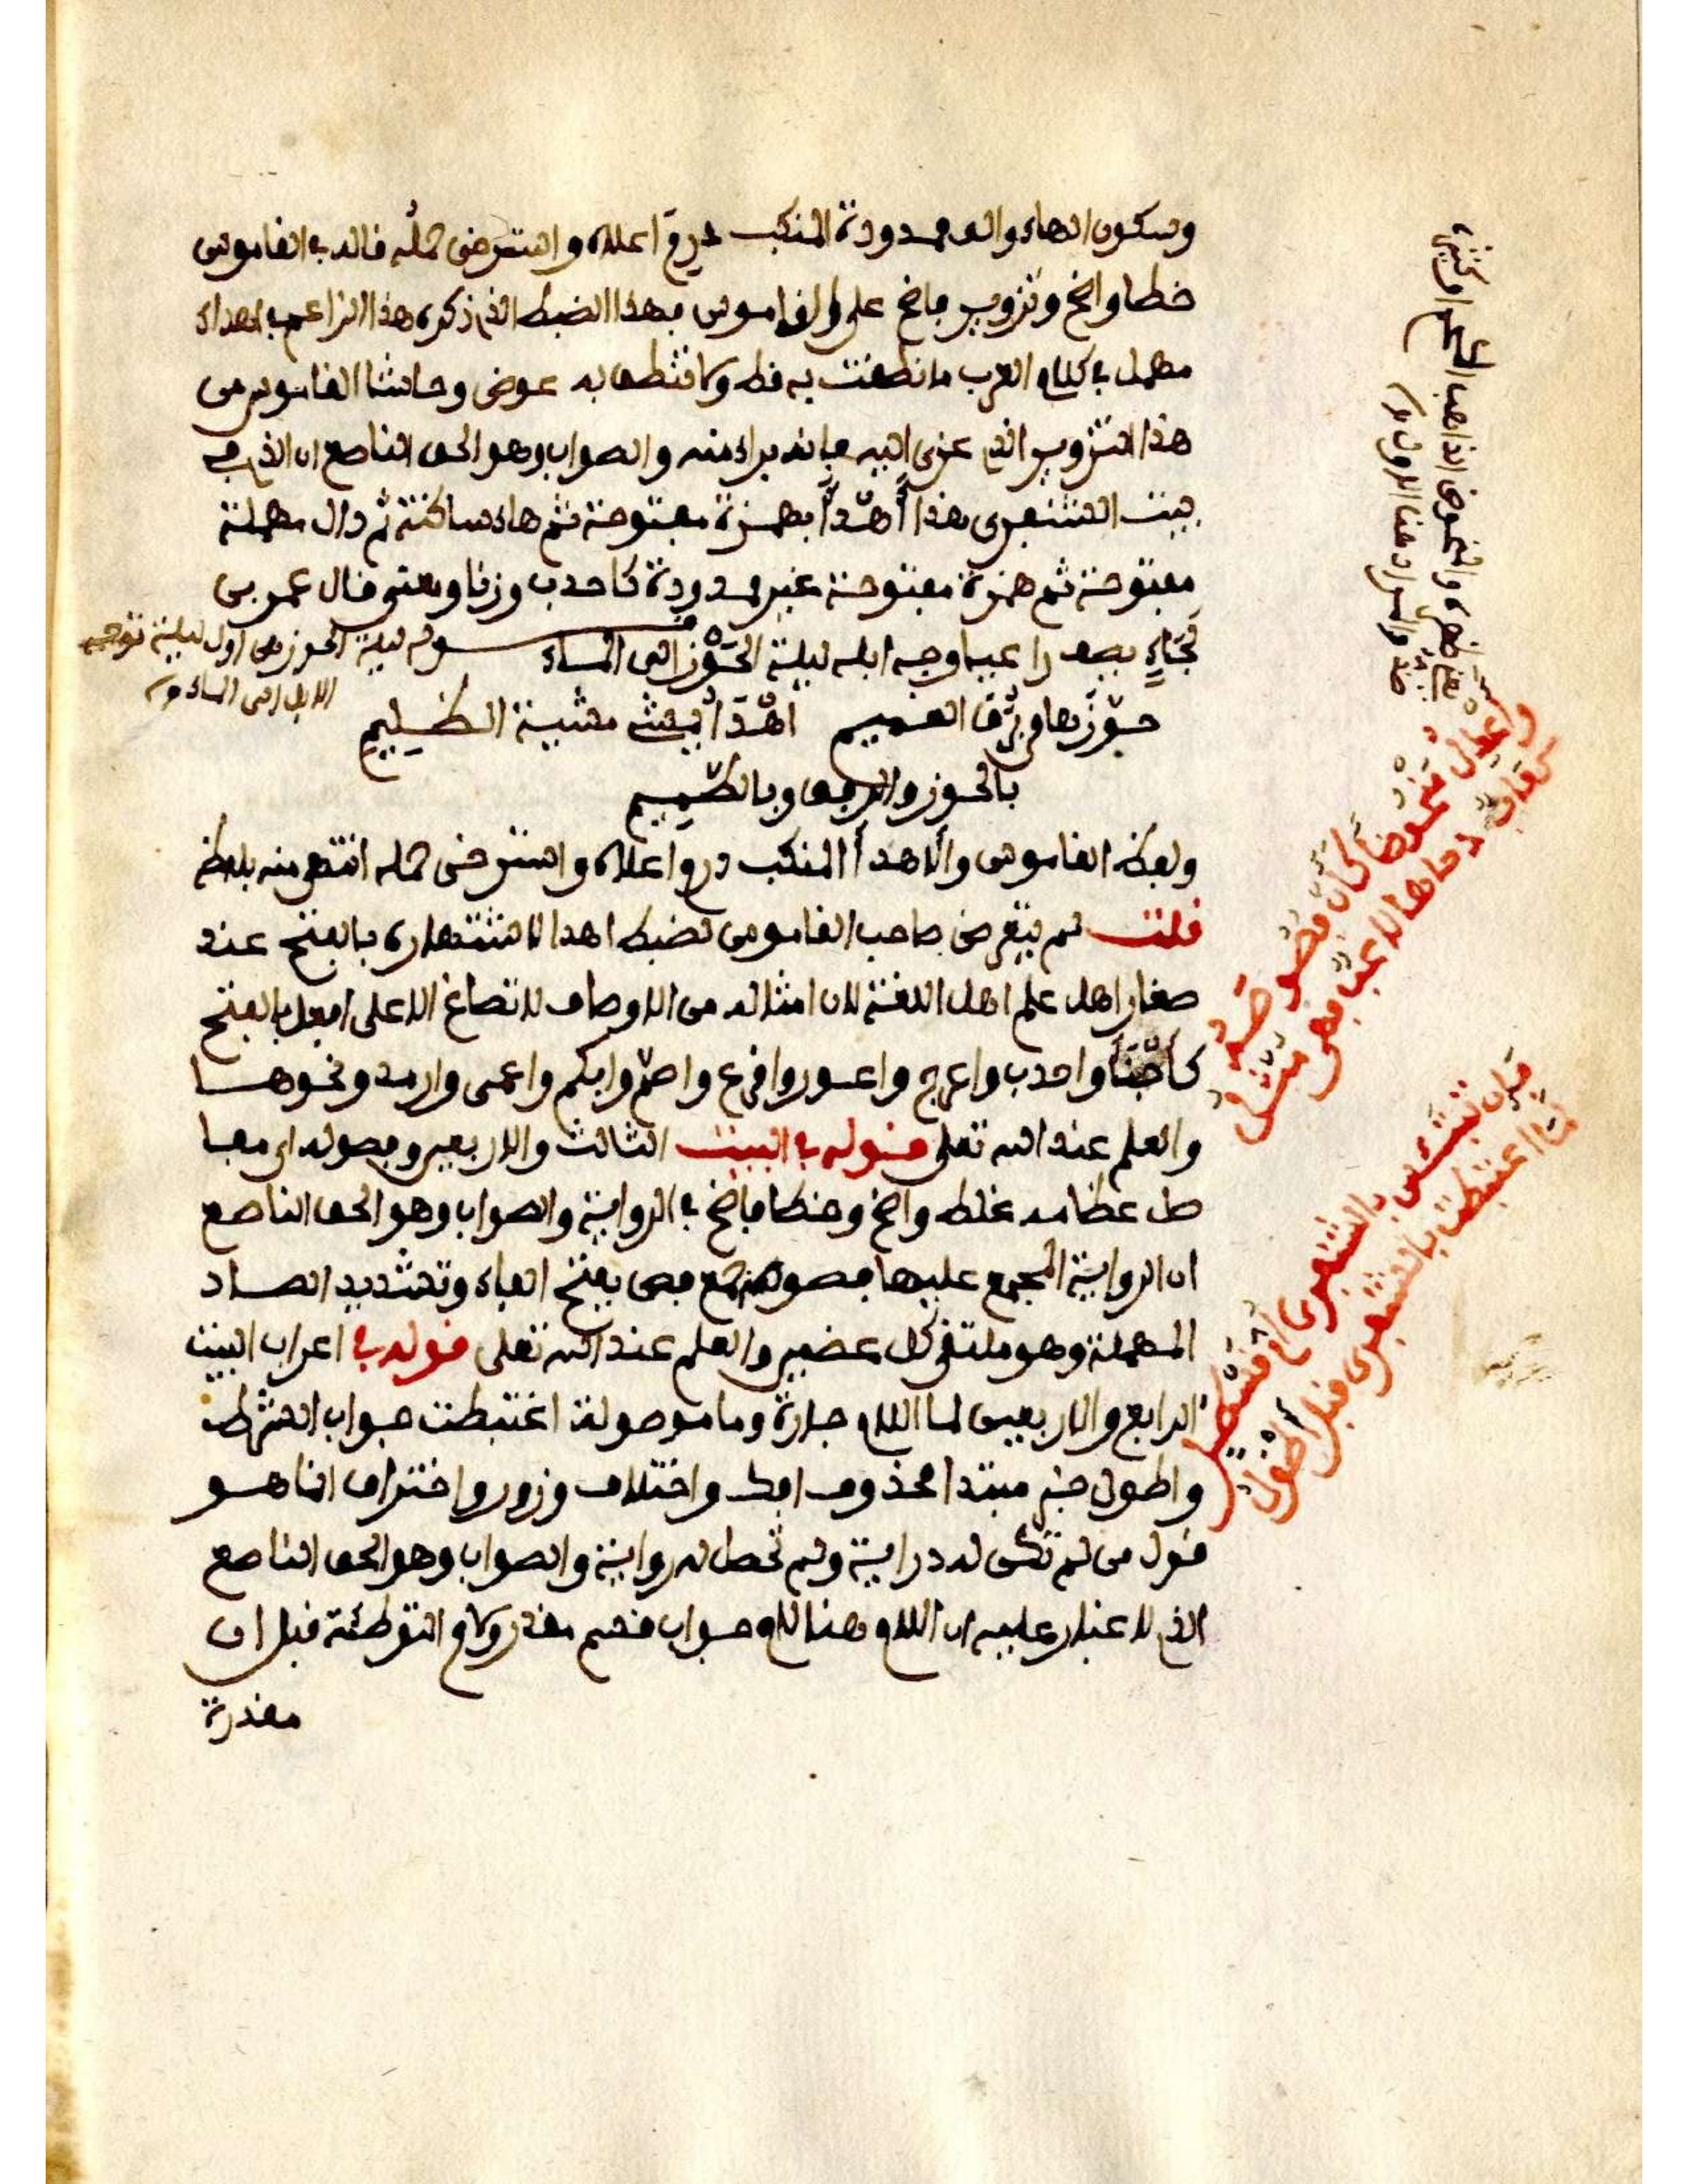 وسكون الهاء والف ممدودة المنكب درم اعلاه واسترخى حمله قاله في القاموس
خطا واضح وتزوير فاضح على القاموس فهذا الضبط الذي ذكره هذا الزاعم في اهداء
مهمل في كلام العرب ما نطقت به قط ولا تنطق به عوض وحاشا القاموس من
هذا التزوير الذي عزى اليه فانه براء منه والصواب وهو الحق الناصع ان الذي في
بيت الشنفرى هذا أَهْدَأ بهمزة مفتوحة ثم هاء ساكنة ثم دال مهملة
مفتوحة ثم همزة مفتوحة غير ممدودة كاحدب وزنا ومعنى قال عمر بن
لجاء يصف راعيا وجه ابله ليلة الحَوْز الى الماء
قوله ليلة الحوز هي اول ليلة توجه
الابل الى الماء
حوّزها من برق الغميم أهْدَأ يمشي مشية الظليم
بالحوز والرفق وبالطميم
ولفظ القاموس والاهدأ المنكب درم اعلاه واسترخى حمله انتهى منه بلفظه
قلت لم يتعرض صاحب القاموس لضبط اهدا لاشتهاره بالفتح عند
صغار اهل علم اهل اللغة لان امثاله من الاوصاف لا تصاغ الا على افعل بالفتح
كأجنأ واحدب واعرج واعور واقرع واصم وابكم واعمى وارمد ونحوها
والعلم عند الله تعلى قوله في البيت الثالث والاربعين وفصوله اي مفا
صل عظامه غلط واضح وخطا فاضح في الرواية والصواب وهو الحق الناصع
ان الرواية المجمع عليها فصوصه جمع فص بفتح الفاء وتشديد الصاد
المهملة وهو ملتقى كل عضمين والعلم عند الله تعلى قوله في اعراب البيت
الرابع والاربعين لما اللام جارة وما موصولة اغتبطت جواب الشرط
واطول خبر مبتدا محذوف افك واختلاف وزور واختراق انما هو
قول من لم تكن له دراية ولم تحصل له رواية والصواب وهو الحق الناصع
الذي لا غبار عليه ان اللام هنا لام جواب قسم مقدر ولام التوطئة قبل ان
مقدرة
واعدل منحوضا كان فصوصه
كعاب دحاها لاعب فهي مثل
فإن تبتئس بالشنفرى ام قسطل
لما اغتبطت بالشنفرى قبل أطول